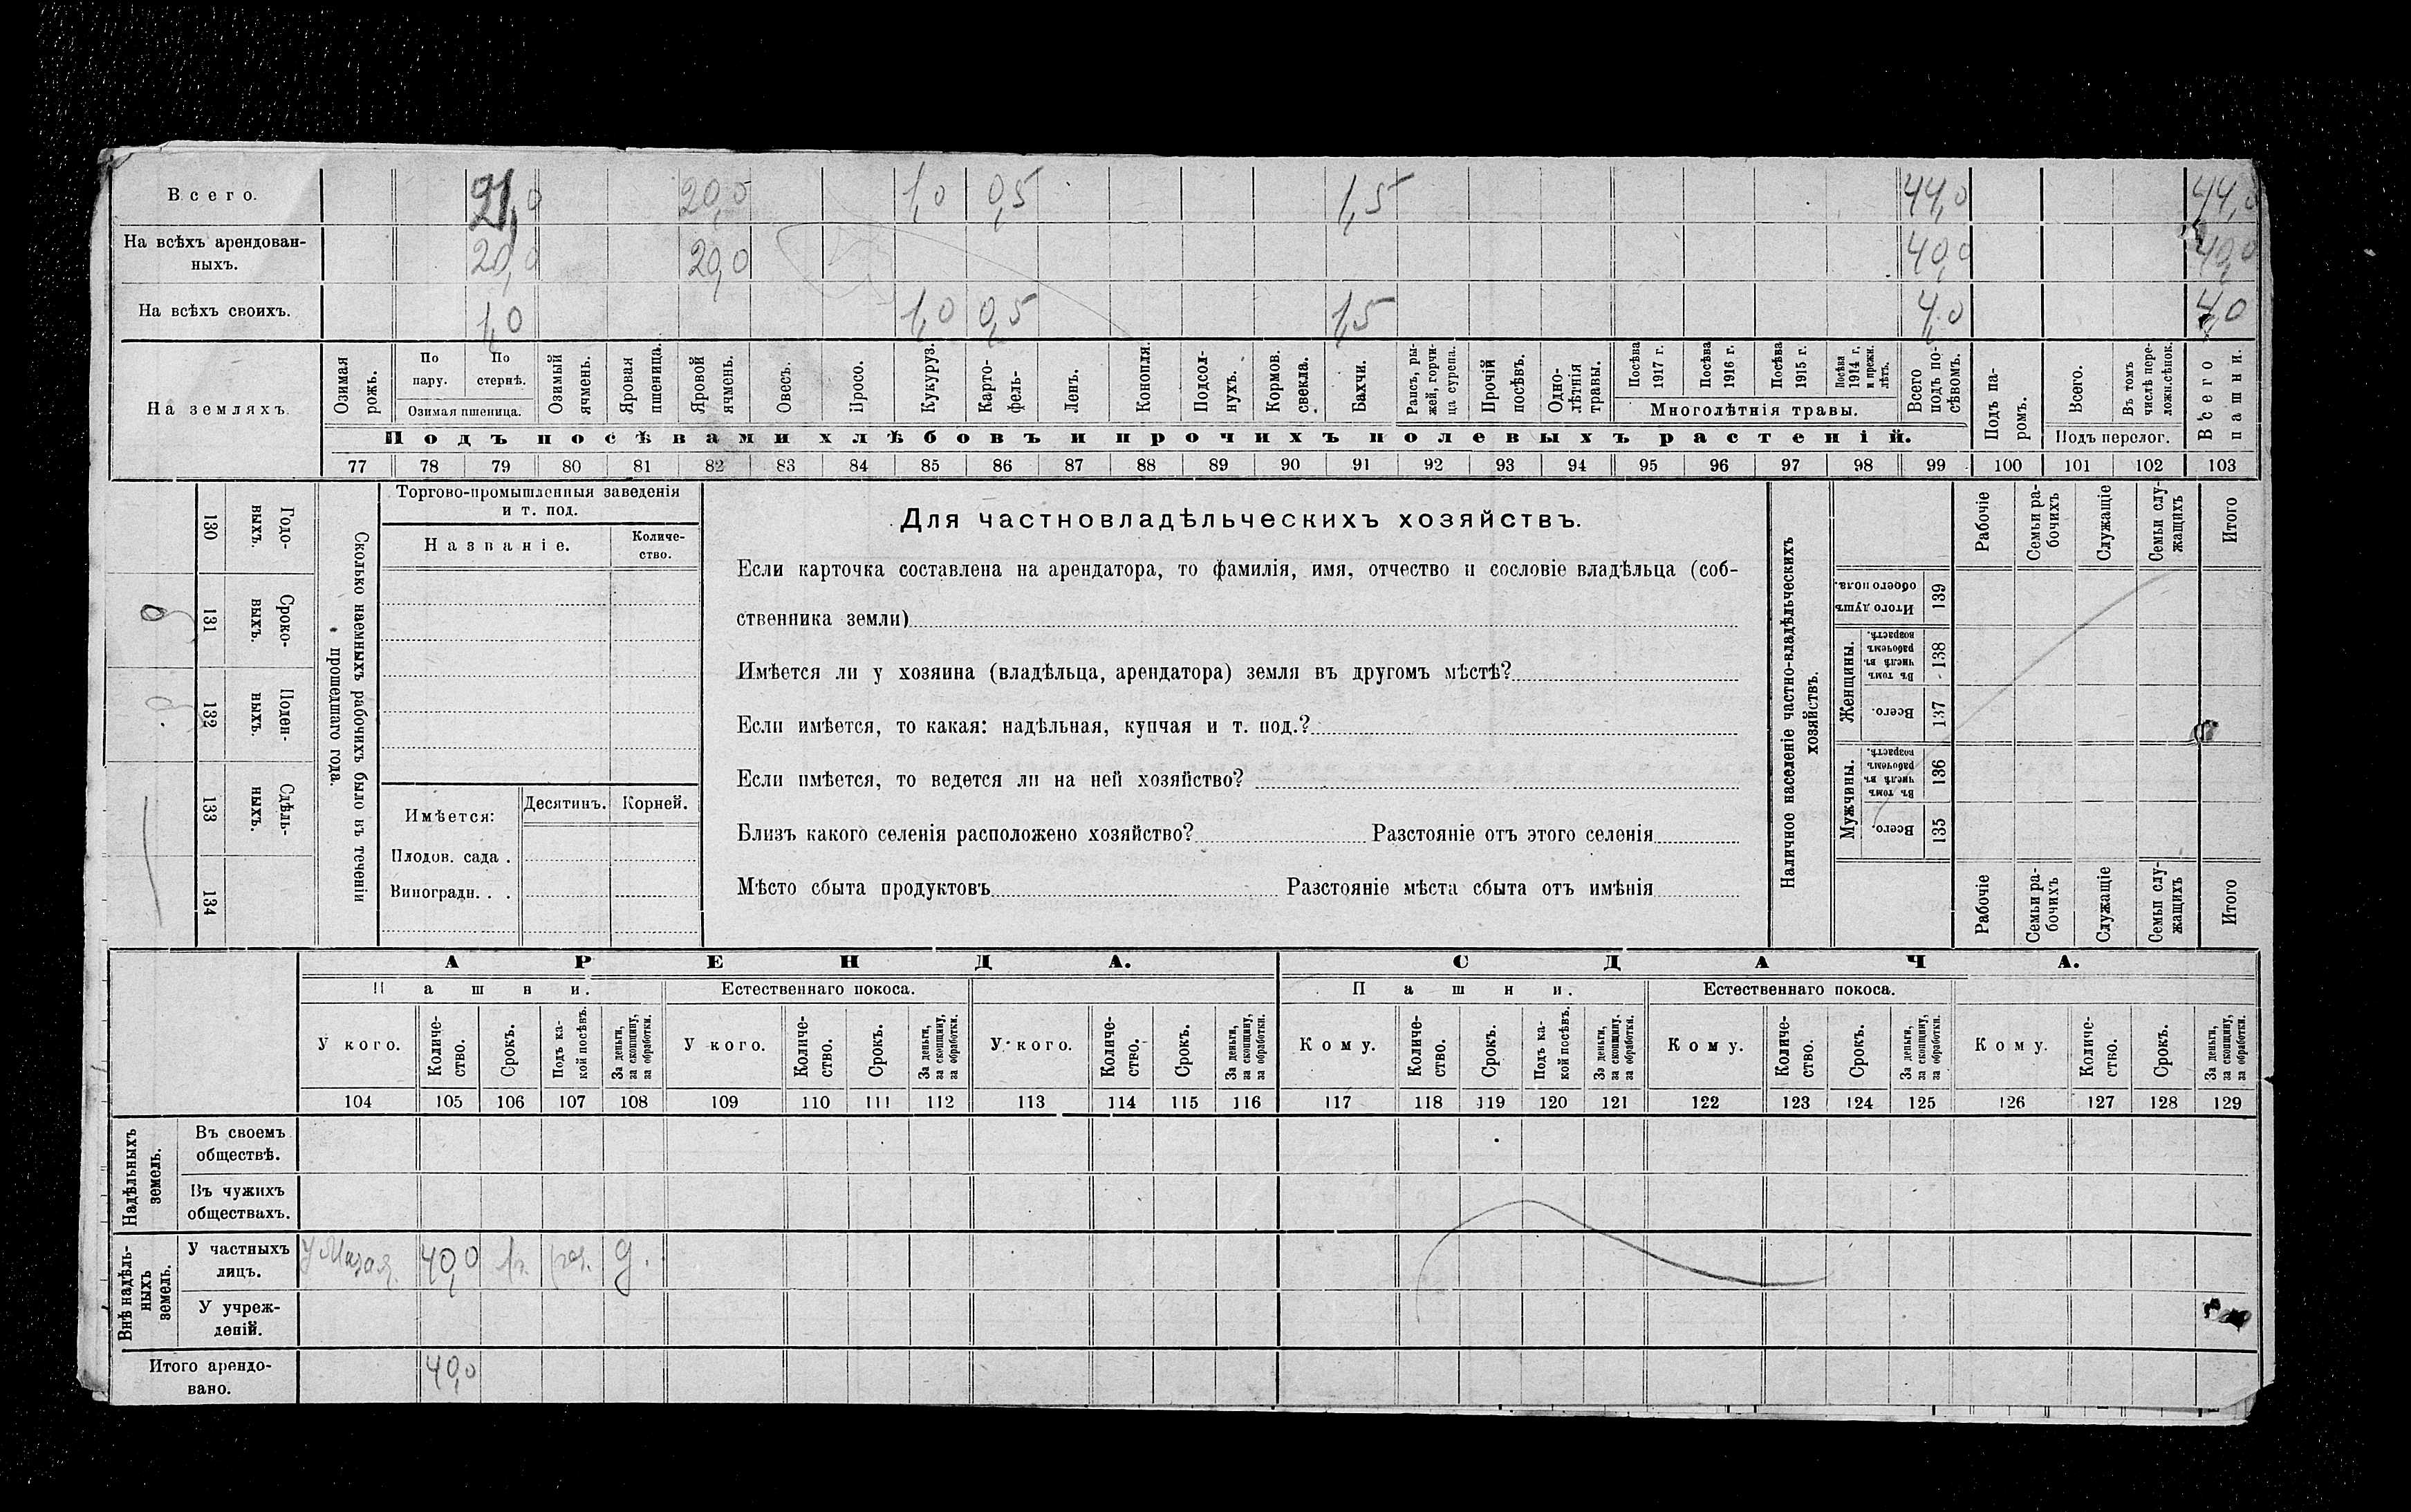 Всего. 21,0 20,0 1,0 0,5 1,5 44,0 44,0
На всѣхъ арендован-
ныхъ. 20,0 20,0 40,0 40,0
На всѣхъ своихъ. 1,0 1,0 0,5 1,5 4,0 4,0
На земляхъ.
Озимая рожь.
По пару.
По стернѣ.
Озимая пшеница.
Озимый ячмень.
Яровая пшеница.
Яровой ячмень.
Овесъ.
Просо.
Кукуруз.
Карто-
фель.
Ленъ.
Конопля.
Подсол-
нухъ.
Кормов.
свекла.
Бахчи.
Рапсъ, ры-
жей, горчи-
ца сурепа.
Прочій
посѣвъ.
Одно-
лѣтнія
травы.
Посѣва
1917 г.
Посѣва
1916 г.
Посѣва
1915 г.
Посѣва
1914 г.
и прежн.
лѣтъ.
Многолѣтнія травы.
Всего
подъ по-
сѣвомъ.
Подъ па-
ромъ.
Всего.
Въ томъ
числѣ пере-
ложн.сѣнок.
Подъ перелог.
Всего
пашни.
Подъ посѣвами хлѣбовъ и прочихъ полевыхъ растеній.
77 78 79 80 81 82 83 84 85 86 87 88 89 90 91 92 93 94 95 96 97 98 99 100 101 102 103
Годо-
выхъ.
130
Сроко-
выхъ.
131
Поден-
ныхъ.
132
Сдѣль-
ныхъ.
133
134
Сколько наемныхъ рабочихъ было въ теченіи
прошедшаго года.
Торгово-промышленныя заведенія
и т. под.
Названіе.
Количе-
ство.
Имѣется:
Десятинъ. Корней.
Плодов. сада .
Виноградн. . .
Для частновладѣльческихъ хозяйствъ.
Если карточка составлена на арендатора, то фамилія, имя, отчество и сословіе владѣльца (соб-
ственника земли)
Имѣется ли у хозяина (владѣльца, арендатора) земля въ другомъ мѣстѣ?
Если имѣется, то какая: надѣльная, купчая и т. под.?
Если имѣется, то ведется ли на ней хозяйство?
Близъ какого селенія расположено хозяйство? Разстояніе отъ этого селенія
Мѣсто сбыта продуктовъ Разстояніе мѣста сбыта отъ имѣнія
Наличное населеніе частно-владѣльческихъ
хозяйствъ.
Рабочіе
Семьи ра-
бочихъ
Служащіе
Семьи слу-
жащихъ
Итого
Итого душъ
обоего пола.
139
Женщины.
Въ томъ
числѣ въ
рабочемъ
возрастѣ.
138
Всего.
137
Мужчины.
Въ томъ
числѣ въ
рабочемъ
возрастѣ.
136
Всего.
135
Рабочіе
Семьи ра-
бочихъ
Служащіе
Семьи слу-
жащихъ
Итого
АРЕНДА. СДАЧА.
Пашни. Естественнаго покоса. Пашни. Естественнаго покоса.
У кого.
Количе-
ство.
Срокъ.
Подъ ка-
кой посѣвъ.
За деньги,
за скопщину,
за обработки.
У кого.
Количе-
ство.
Срокъ.
За деньги,
за скопщину,
за обработки.
У кого.
Количе-
ство.
Срокъ.
За деньги,
за скопщину,
за обработки.
Кому.
Количе-
ство.
Срокъ.
Подъ ка-
кой посѣвъ.
За деньги,
за скопщину,
за обработки.
Кому.
Количе-
ство.
Срокъ.
За деньги,
за скопщину,
за обработки.
Кому.
Количе-
ство.
Срокъ.
За деньги,
за скопщину,
за обработки.
104 105 106 107 108 109 110 111 112 113 114 115 116 117 118 119 120 121 122 123 124 125 126 127 128 129
Надѣльныхъ
земель.
Въ своемъ
обществѣ.
Въ чужихъ
обществахъ.
Внѣ надѣль-
ныхъ
земель.
У частныхъ
лицъ. 40,0 1г. д.
У учреж-
деній.
Итого арендо-
вано. 40,0